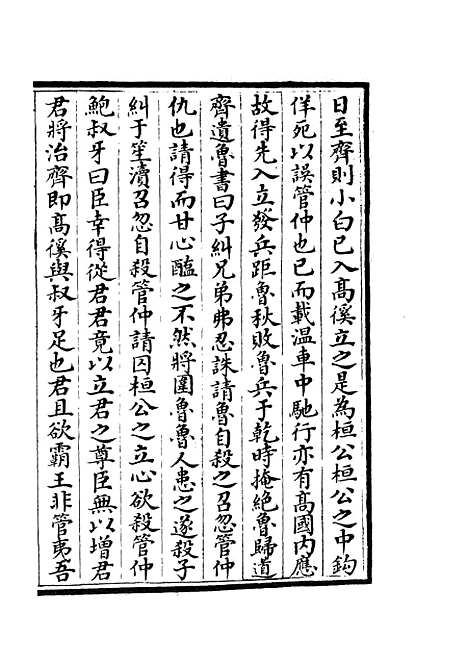 日至齊則小白已入髙徯立之是為桓公桓公之中鈎
佯死以誤管仲也已而載温車中馳行亦有髙國内應
故得先入立發兵距魯秋敗魯兵于乾時掩絶魯歸道
齊遺魯書曰子糾兄弟弗忍誅請魯自殺之召忽管仲
仇也請得而甘心醢之不然將圍魯魯人患之遂殺子
糾于笙瀆召忽自殺管仲請囚桓公之立心欲殺管仲
鮑叔牙曰臣幸得從君君竟以立君之尊臣無以增君
君將治齊即髙徯與叔牙足也君且欲霸王非管夷吾